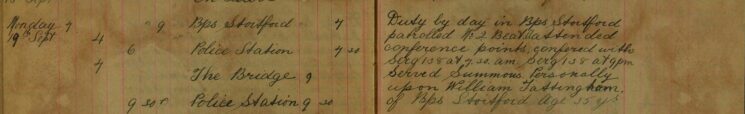 Monday 7 " 9 Bps Stortford 7
19th Sept 4
6 Police Station 7 30
7 The Bridge 9
9 30 Police Station 9 30
Duty by day in Bps Stortford
patrolled No 2 Beat attended
conference points, confered with
Serg 158 at 7.30 am Serg 158 at 9pm
Served Summons Personally
upon William Tassingham.
of Bps Stortford Age 35 yrs